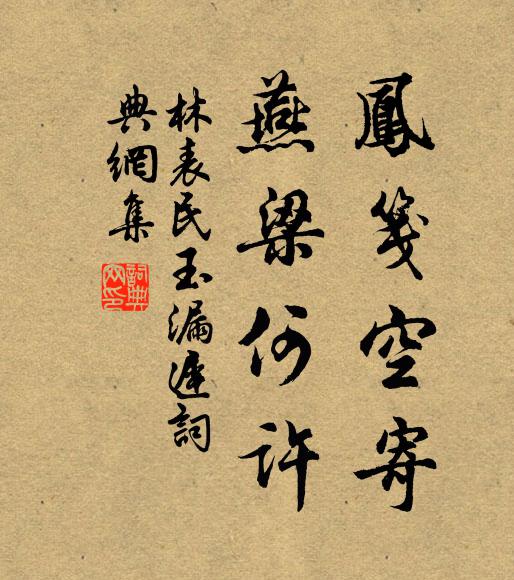 鳳箋空寄
燕梁何許
林表民玉漏遲詞
典網集
詞典網印